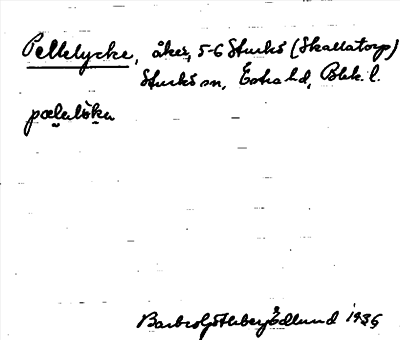 Pellelycke, åker, 5-6 Sturkö (Skallatorp)
Sturkö sn, Östra hd, Blek. l.
pælalöka
Barbro Götheberg Edlund 1935